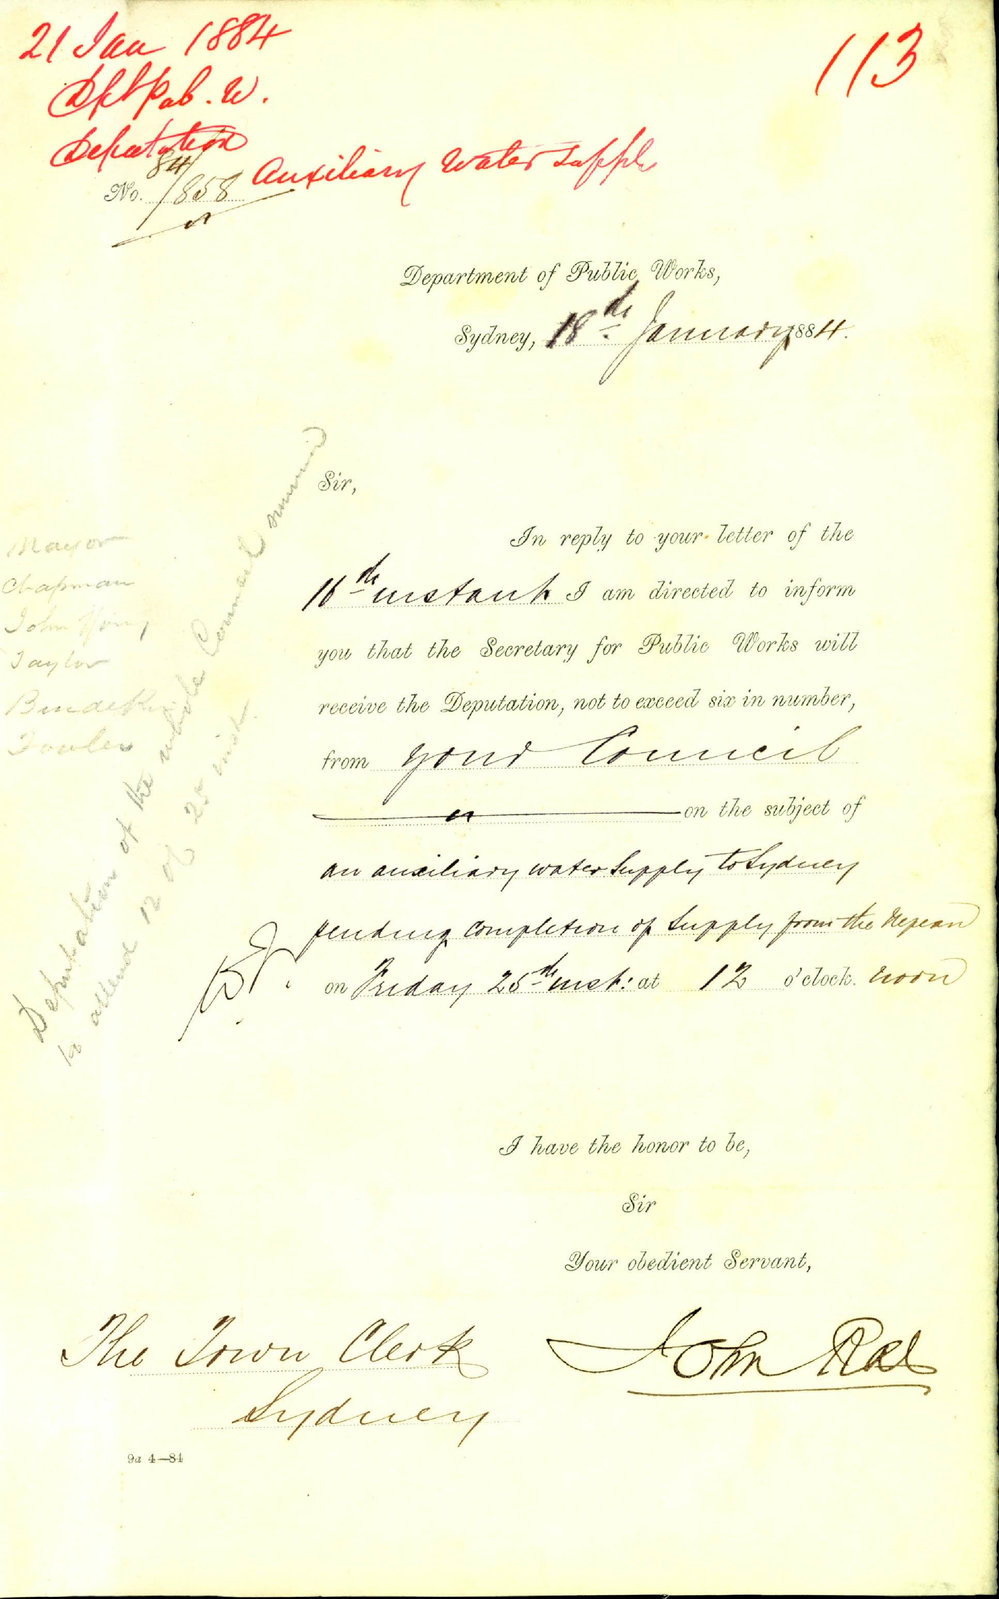 21 Jan 1884
113
Dpt Pub. W.
Deputation
Auxiliary Water Suppl
No. 84/858
Department of Public Works,
Sydney, 18th January 1884.
Sir,
In reply to your letter of the
16th instant I am directed to inform
you that the Secretary for Public Works will
receive the Deputation, not to exceed six in number,
from your Council
on the subject of
an auxiliary water Supply to Sydney
pending completion of Supply from the Nepean
on Friday 25th inst: at 12 o'clock. noon
Mayor
Chapman
John Young
Taylor
Fowler
Deputation of the whole Council
to attend 12 of 25 inst
I have the honor to be,
Sir
Your obedient Servant,
John Rae
The Town Clerk
Sydney
9a 4—84